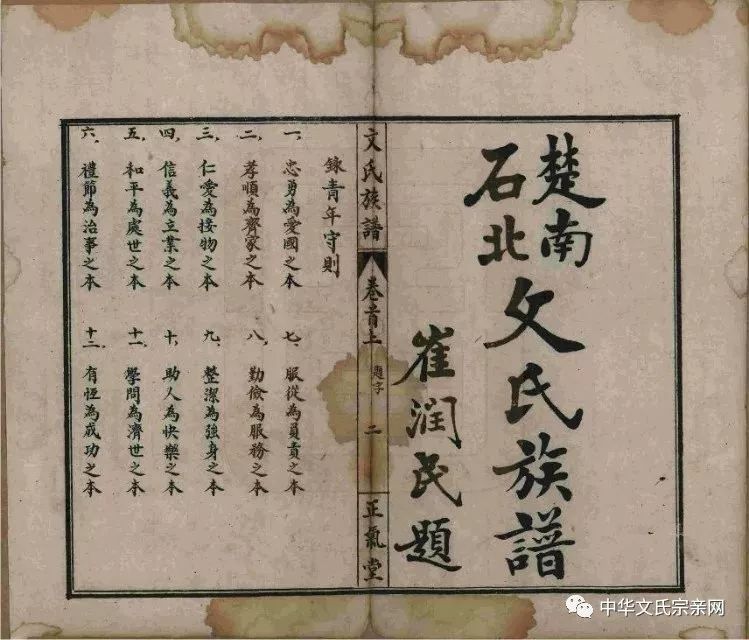 楚南
石北
文氏族譜
崔潤民題
文氏族譜
卷首上
題字
二
正氣堂
錄青年守則
一、忠勇為愛國之本
二、孝順為齊家之本
三、仁愛為接物之本
四、信義為立業之本
五、和平為處世之本
六、禮節為治事之本
七、服從為負責之本
八、勤儉為服務之本
九、整潔為強身之本
十、助人為快樂之本
十一、學問為濟世之本
十二、有恆為成功之本
中华文氏宗亲网